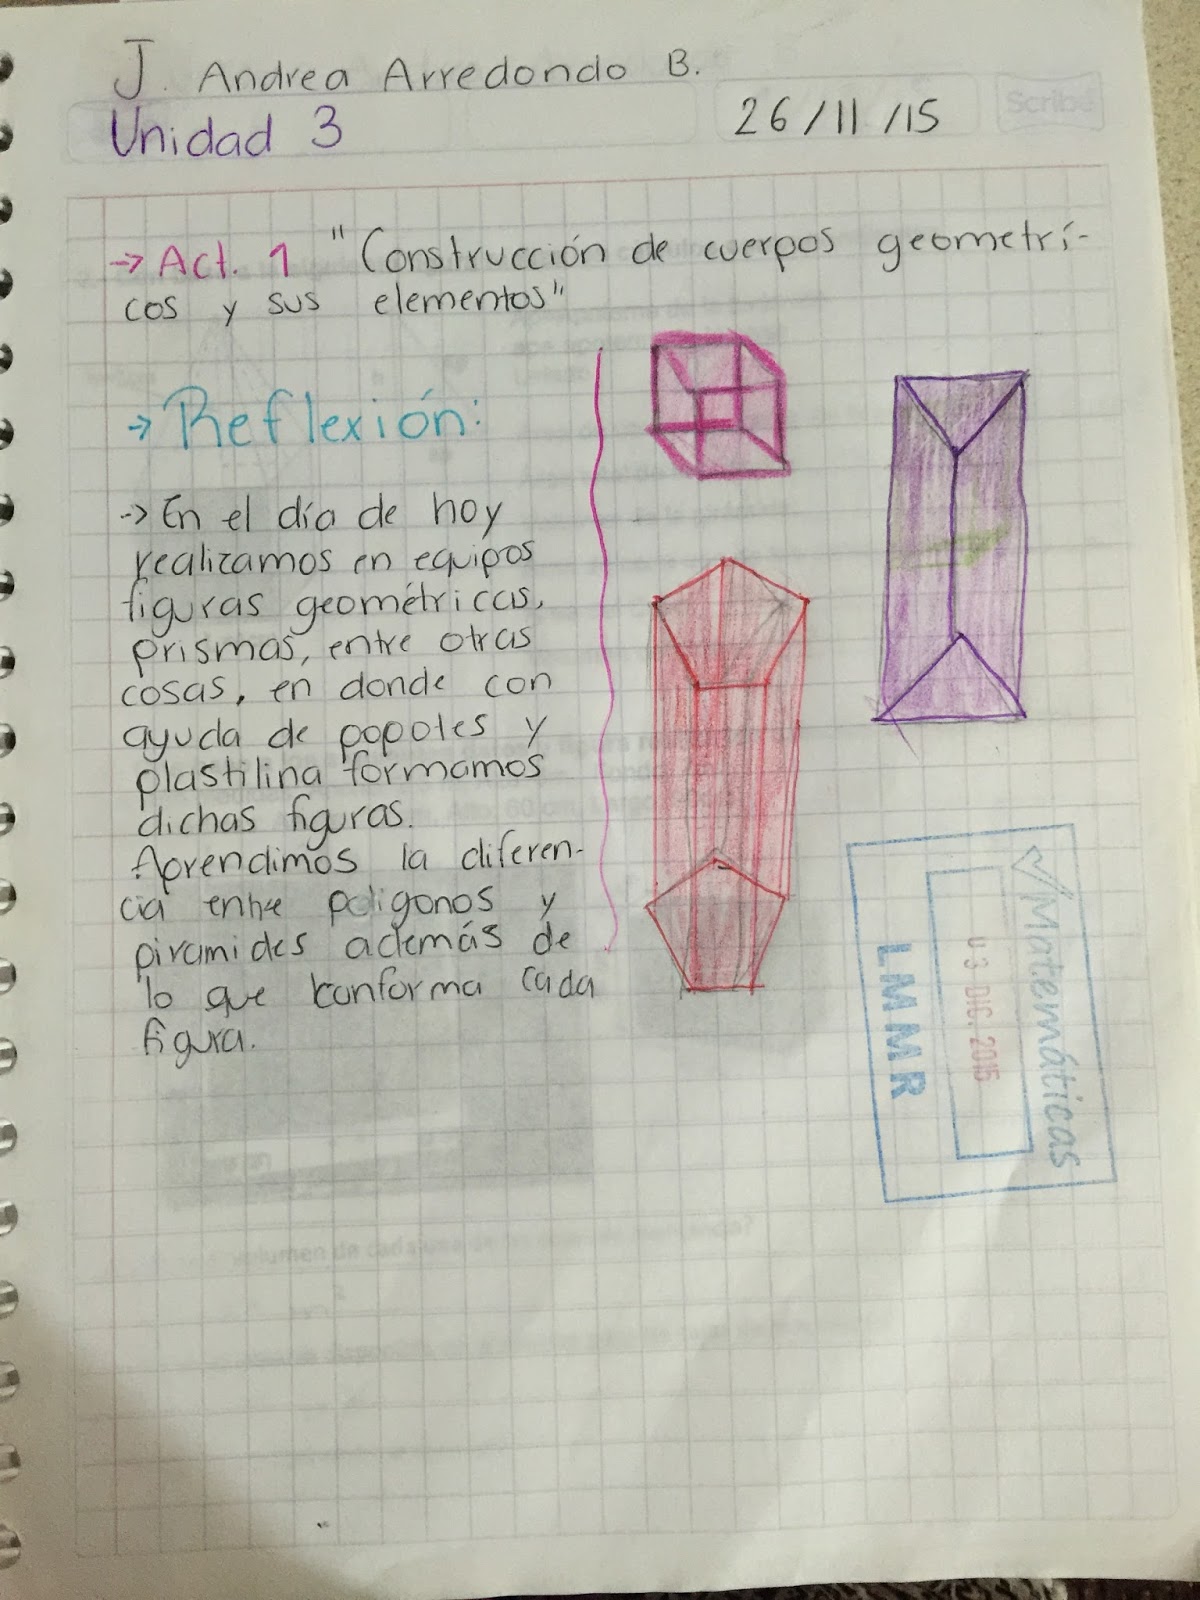 J. Andrea Arredondo B.
Unidad 3
26/11/15
Scribe
→ Act. 1 "Construcción de cuerpos geometrí-
cos y sus elementos"
→ Reflexión:
→ En el día de hoy
realizamos en equipos
figuras geométricas,
prismas, entre otras
cosas, en donde con
ayuda de popotes y
plastilina formamos
dichas figuras.
Aprendimos la diferen-
cia entre poligonos y
piramides además de
lo que conforma cada
figura.
Matemáticas
03 DIC. 2015
LMMR